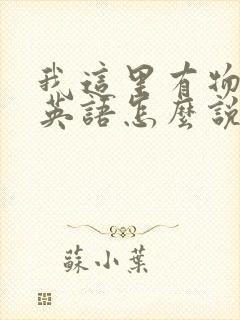 我這里有物
英語怎麼說
蘇小葉